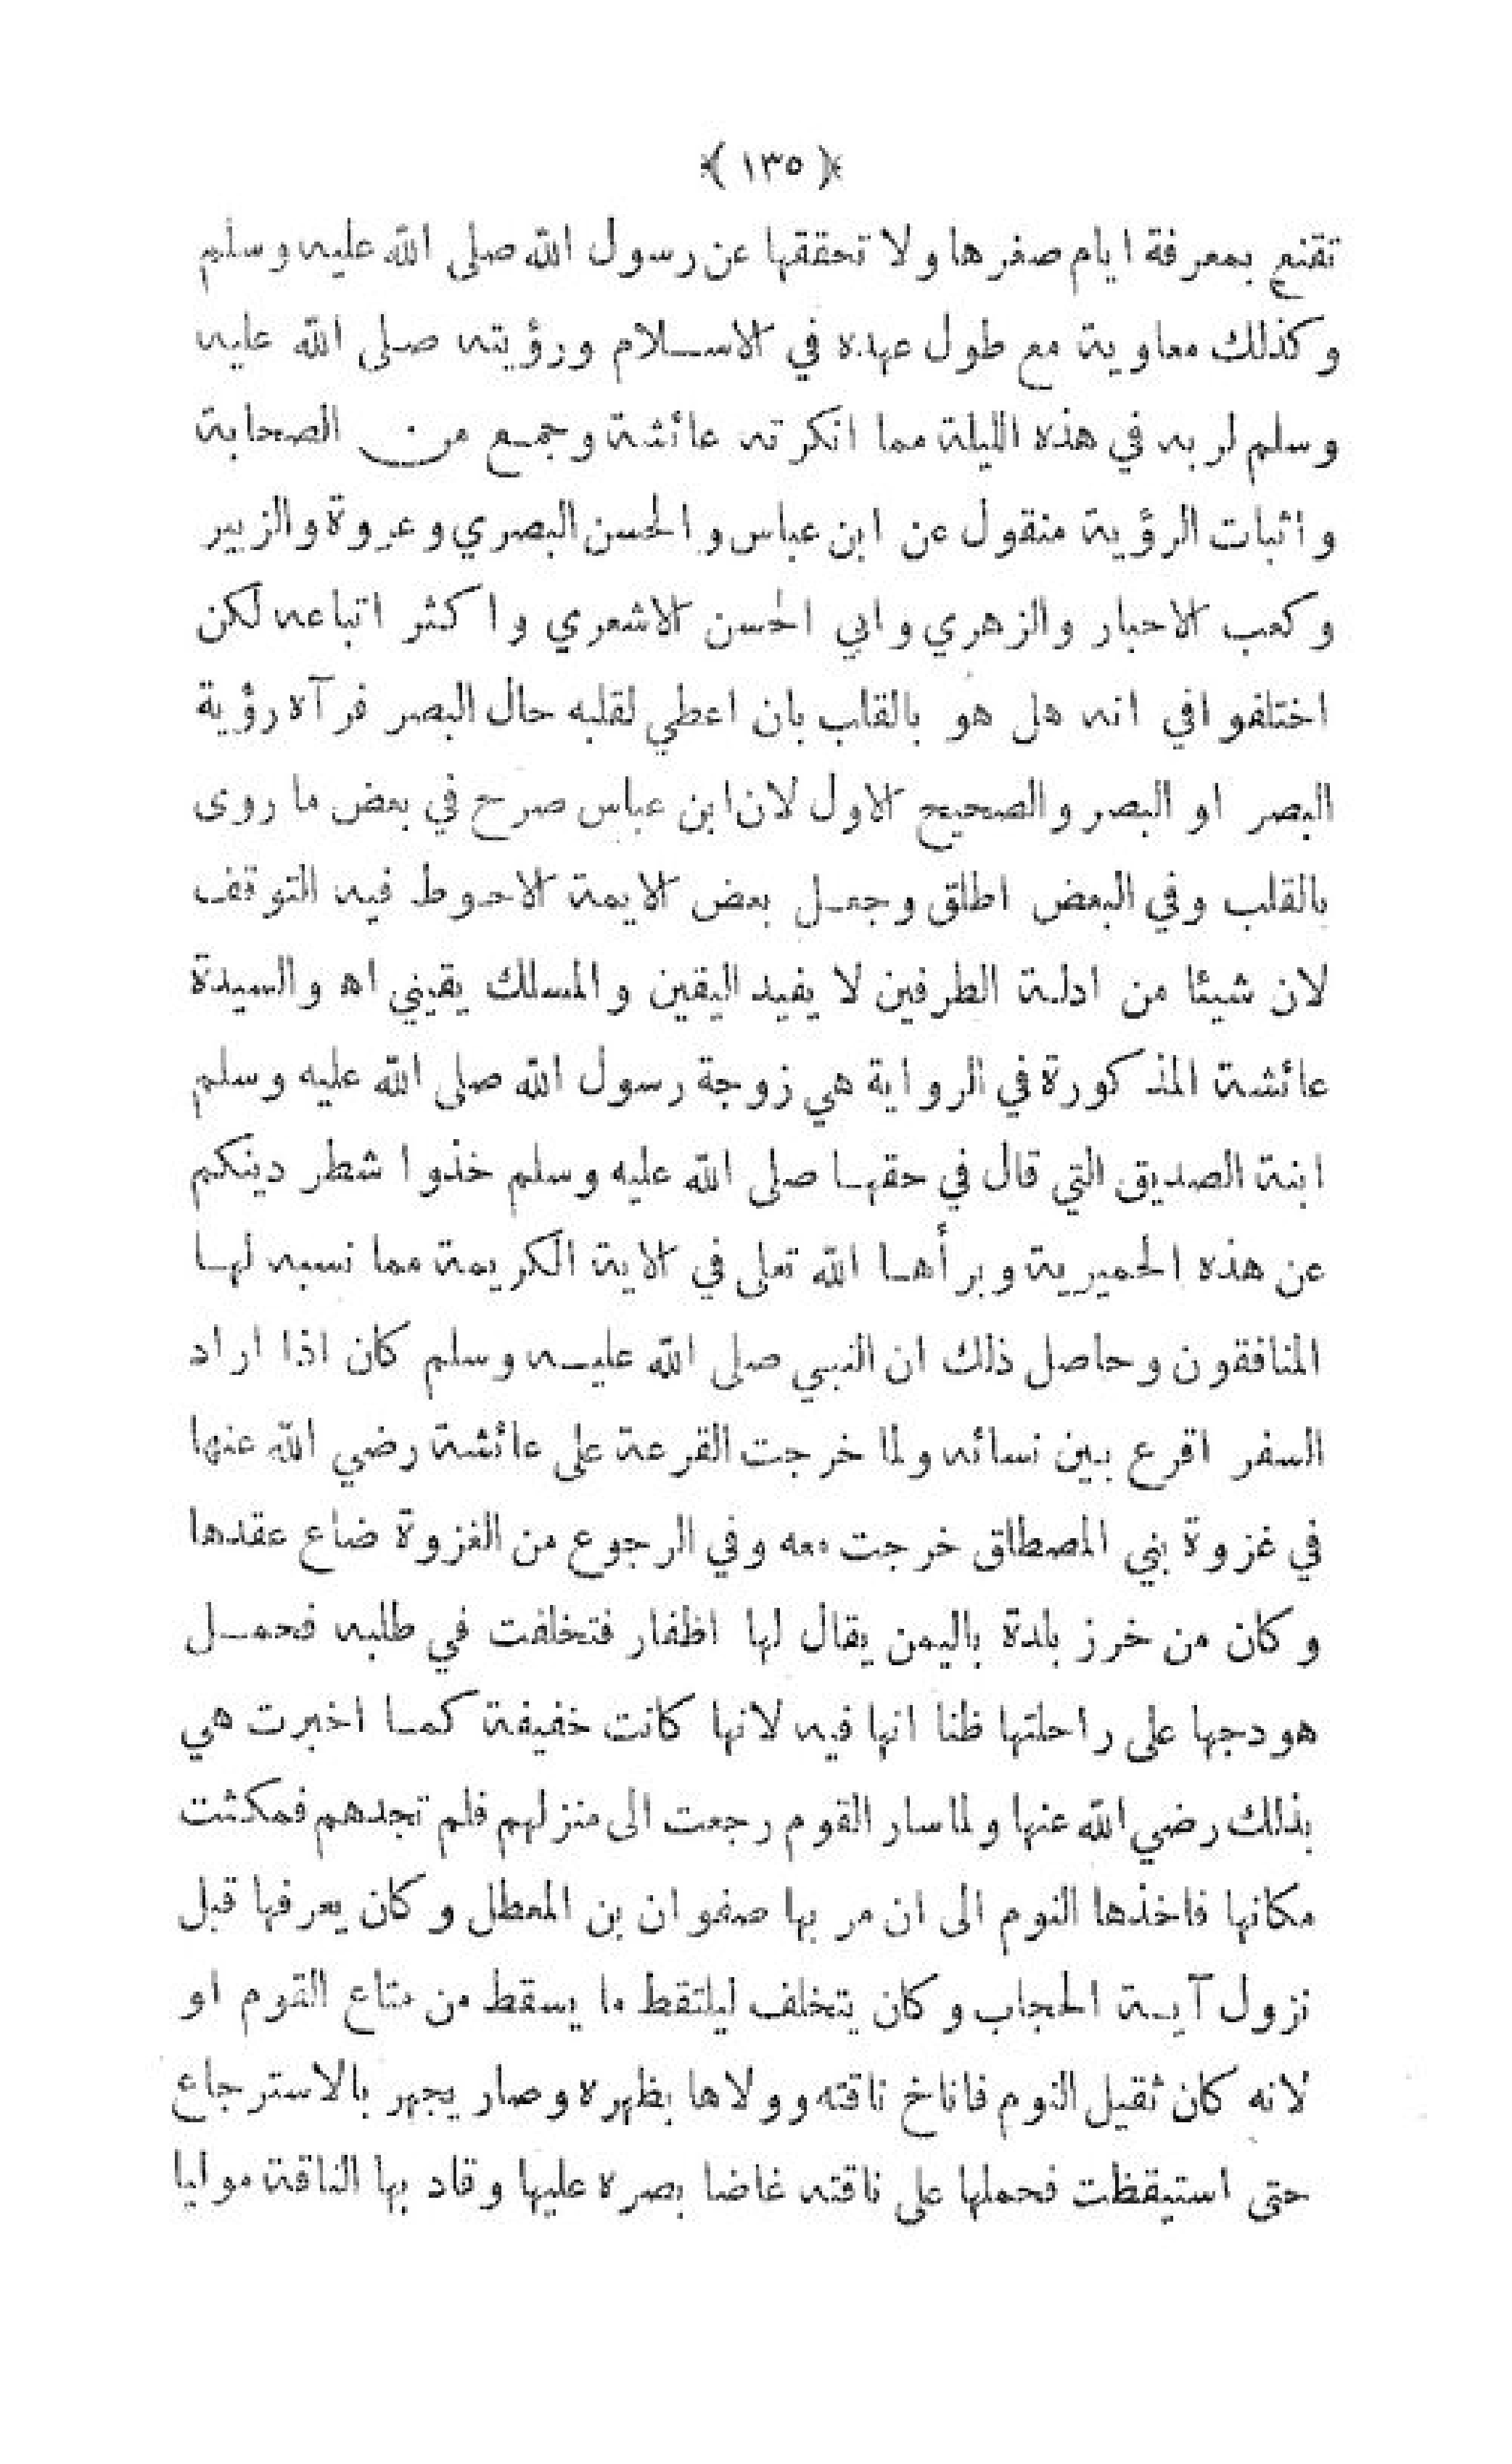 ﴿ ١٣٥ ﴾
تقنع بمعرفة ايام صغرها ولا تحققها عن رسول الله صلى الله عليه وسلم
وكذلك معاوية مع طول عهده في الاسلام ورؤيته صلى الله عليه
وسلم لربه في هذه الليلة مما انكرته عائشة وجمع من الصحابة
واثبات الرؤية منقول عن ابن عباس والحسن البصري وعروة والزبير
وكعب الاحبار والزهري وابي الحسن الاشعري واكثر اتباعه لكن
اختلفوا في انه هل هو بالقلب بان اعطي لقلبه حال البصر فرآه رؤية
البصر او البصر والصحيح الاول لان ابن عباس صرح في بعض ما روى
بالقلب وفي البعض اطلق وجعل بعض الايمة الاحوط فيه التوقف
لان شيئا من ادلة الطرفين لا يفيد اليقين والمسلك يقيني اه والسيدة
عائشة المذكورة في الرواية هي زوجة رسول الله صلى الله عليه وسلم
ابنة الصديق التي قال في حقها صلى الله عليه وسلم خذوا شطر دينكم
عن هذه الحميرية وبرأها الله تعلى في الاية الكريمة مما نسبه لها
المنافقون وحاصل ذلك ان النبي صلى الله عليه وسلم كان اذا اراد
السفر اقرع بين نسائه ولما خرجت القرعة على عائشة رضي الله عنها
في غزوة بني المصطلق خرجت معه وفي الرجوع من الغزوة ضاع عقدها
وكان من خرز بلدة باليمن يقال لها اظفار فتخلفت في طلبه فحمل
هودجها على راحلتها ظنا انها فيه لانها كانت خفيفة كما اخبرت هي
بذلك رضي الله عنها ولما سار القوم رجعت الى منزلهم فلم تجدهم فمكثت
مكانها فاخذها النوم الى ان مر بها صفوان بن المعطل وكان يعرفها قبل
نزول آية الحجاب وكان يتخلف ليلتقط ما يسقط من متاع القوم او
لانه كان ثقيل النوم فاناخ ناقته وولاها بظهره وصار يجهر بالاسترجاع
حتى استيقظت فحملها على ناقته غاضا بصره عليها وقاد بها الناقة موليا